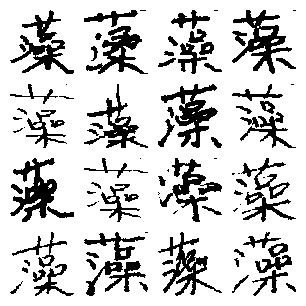 藻藻藻藻
藻藻藻藻
藻藻藻藻
藻藻藻藻